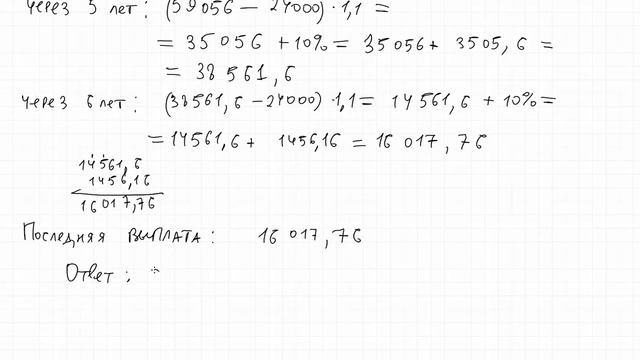 Через 5 лет: (59056 – 24000) · 1,1 =
= 35056 + 10% = 35056 + 3505,6 =
= 38561,6
Через 6 лет: (38561,6 – 24000) · 1,1 = 14561,6 + 10% =
= 14561,6 + 1456,16 = 16017,76
14561,6
1456,16
16017,76
Последняя выплата: 16017,76
Ответ: